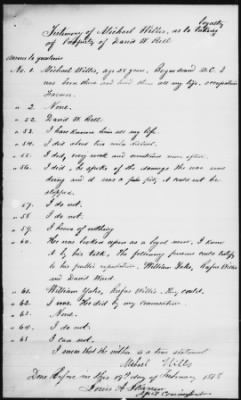 Testimony of Michael Willis, as to loyalty
of property of David W. Kell
answers to questions
No. 1. Michael Willis, age 28 years,
been there and lived there all my life, occupation
Farmer.
" 2. None.
" 52. David W. Kell
" 53. I have known him all my life.
" 54. I did about two miles distant.
" 55. I did, very week and sometimes more often.
" 56. I did, he spoke of the damage the war was
doing and it was a pity it could not be
stopped.
" 57. I do not.
" 58. I do not.
" 59. I know of nothing
" 60. He was looked upon as a loyal man, I know
it by his talk. The following persons could testify
to his public reputation. William Yates, Rufus Willis
and David Ward.
" 61. William Yates, Rufus Willis. They could.
" 62. I was. He did by my conversation.
" 63. None.
" 64. I do not.
" 65. I can not.
I swear that the within is a true statement
Michael Willis
Done before me this day of February